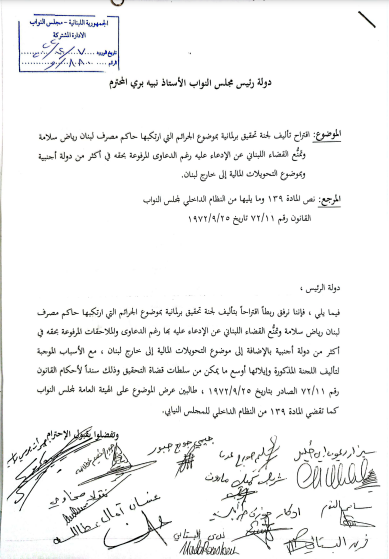 الجمهورية اللبنانية - مجلس النواب
الادارة المشتركة
تاريخ الورود
الرقم
دولة رئيس مجلس النواب الأستاذ نبيه بري المحترم
الموضوع: اقتراح تأليف لجنة تحقيق برلمانية بموضوع الجرائم التي ارتكبها حاكم مصرف لبنان رياض سلامة
وتمنُّع القضاء اللبناني عن الإدعاء عليه رغم الدعاوى المرفوعة بحقه في أكثر من دولة أجنبية
وبموضوع التحويلات المالية إلى خارج لبنان.
المرجع: نص المادة ١٣٩ وما يليها من النظام الداخلي لمجلس النواب
القانون رقم ٧٢/١١ تاريخ ١٩٧٢/٩/٢٥
دولة الرئيس ،
فيما يلي ، فإننا نرفق ربطاً اقتراحاً بتأليف لجنة تحقيق برلمانية بموضوع الجرائم التي ارتكبها حاكم مصرف
لبنان رياض سلامة وتمنُّع القضاء اللبناني عن الإدعاء عليه بها رغم الدعاوى والملاحقات المرفوعة بحقه في
أكثر من دولة أجنبية بالإضافة إلى موضوع التحويلات المالية إلى خارج لبنان ، مع الأسباب الموجبة
لتأليف اللجنة المذكورة وإيلائها أوسع ما يمكن من سلطات قضاة التحقيق وذلك سنداً لأحكام القانون
رقم ٧٢/١١ الصادر بتاريخ ١٩٧٢/٩/٢٥ ، طالبين عرض الموضوع على الهيئة العامة لمجلس النواب
كما تقتضي المادة ١٣٩ من النظام الداخلي للمجلس النيابي.
وتفضلوا بقبول الإحترام
جيمي جورج جبور
سليم عون
شربل مارون
نقولا صحناوي
غسان أمال عطالله
ادكار
فريد البستاني